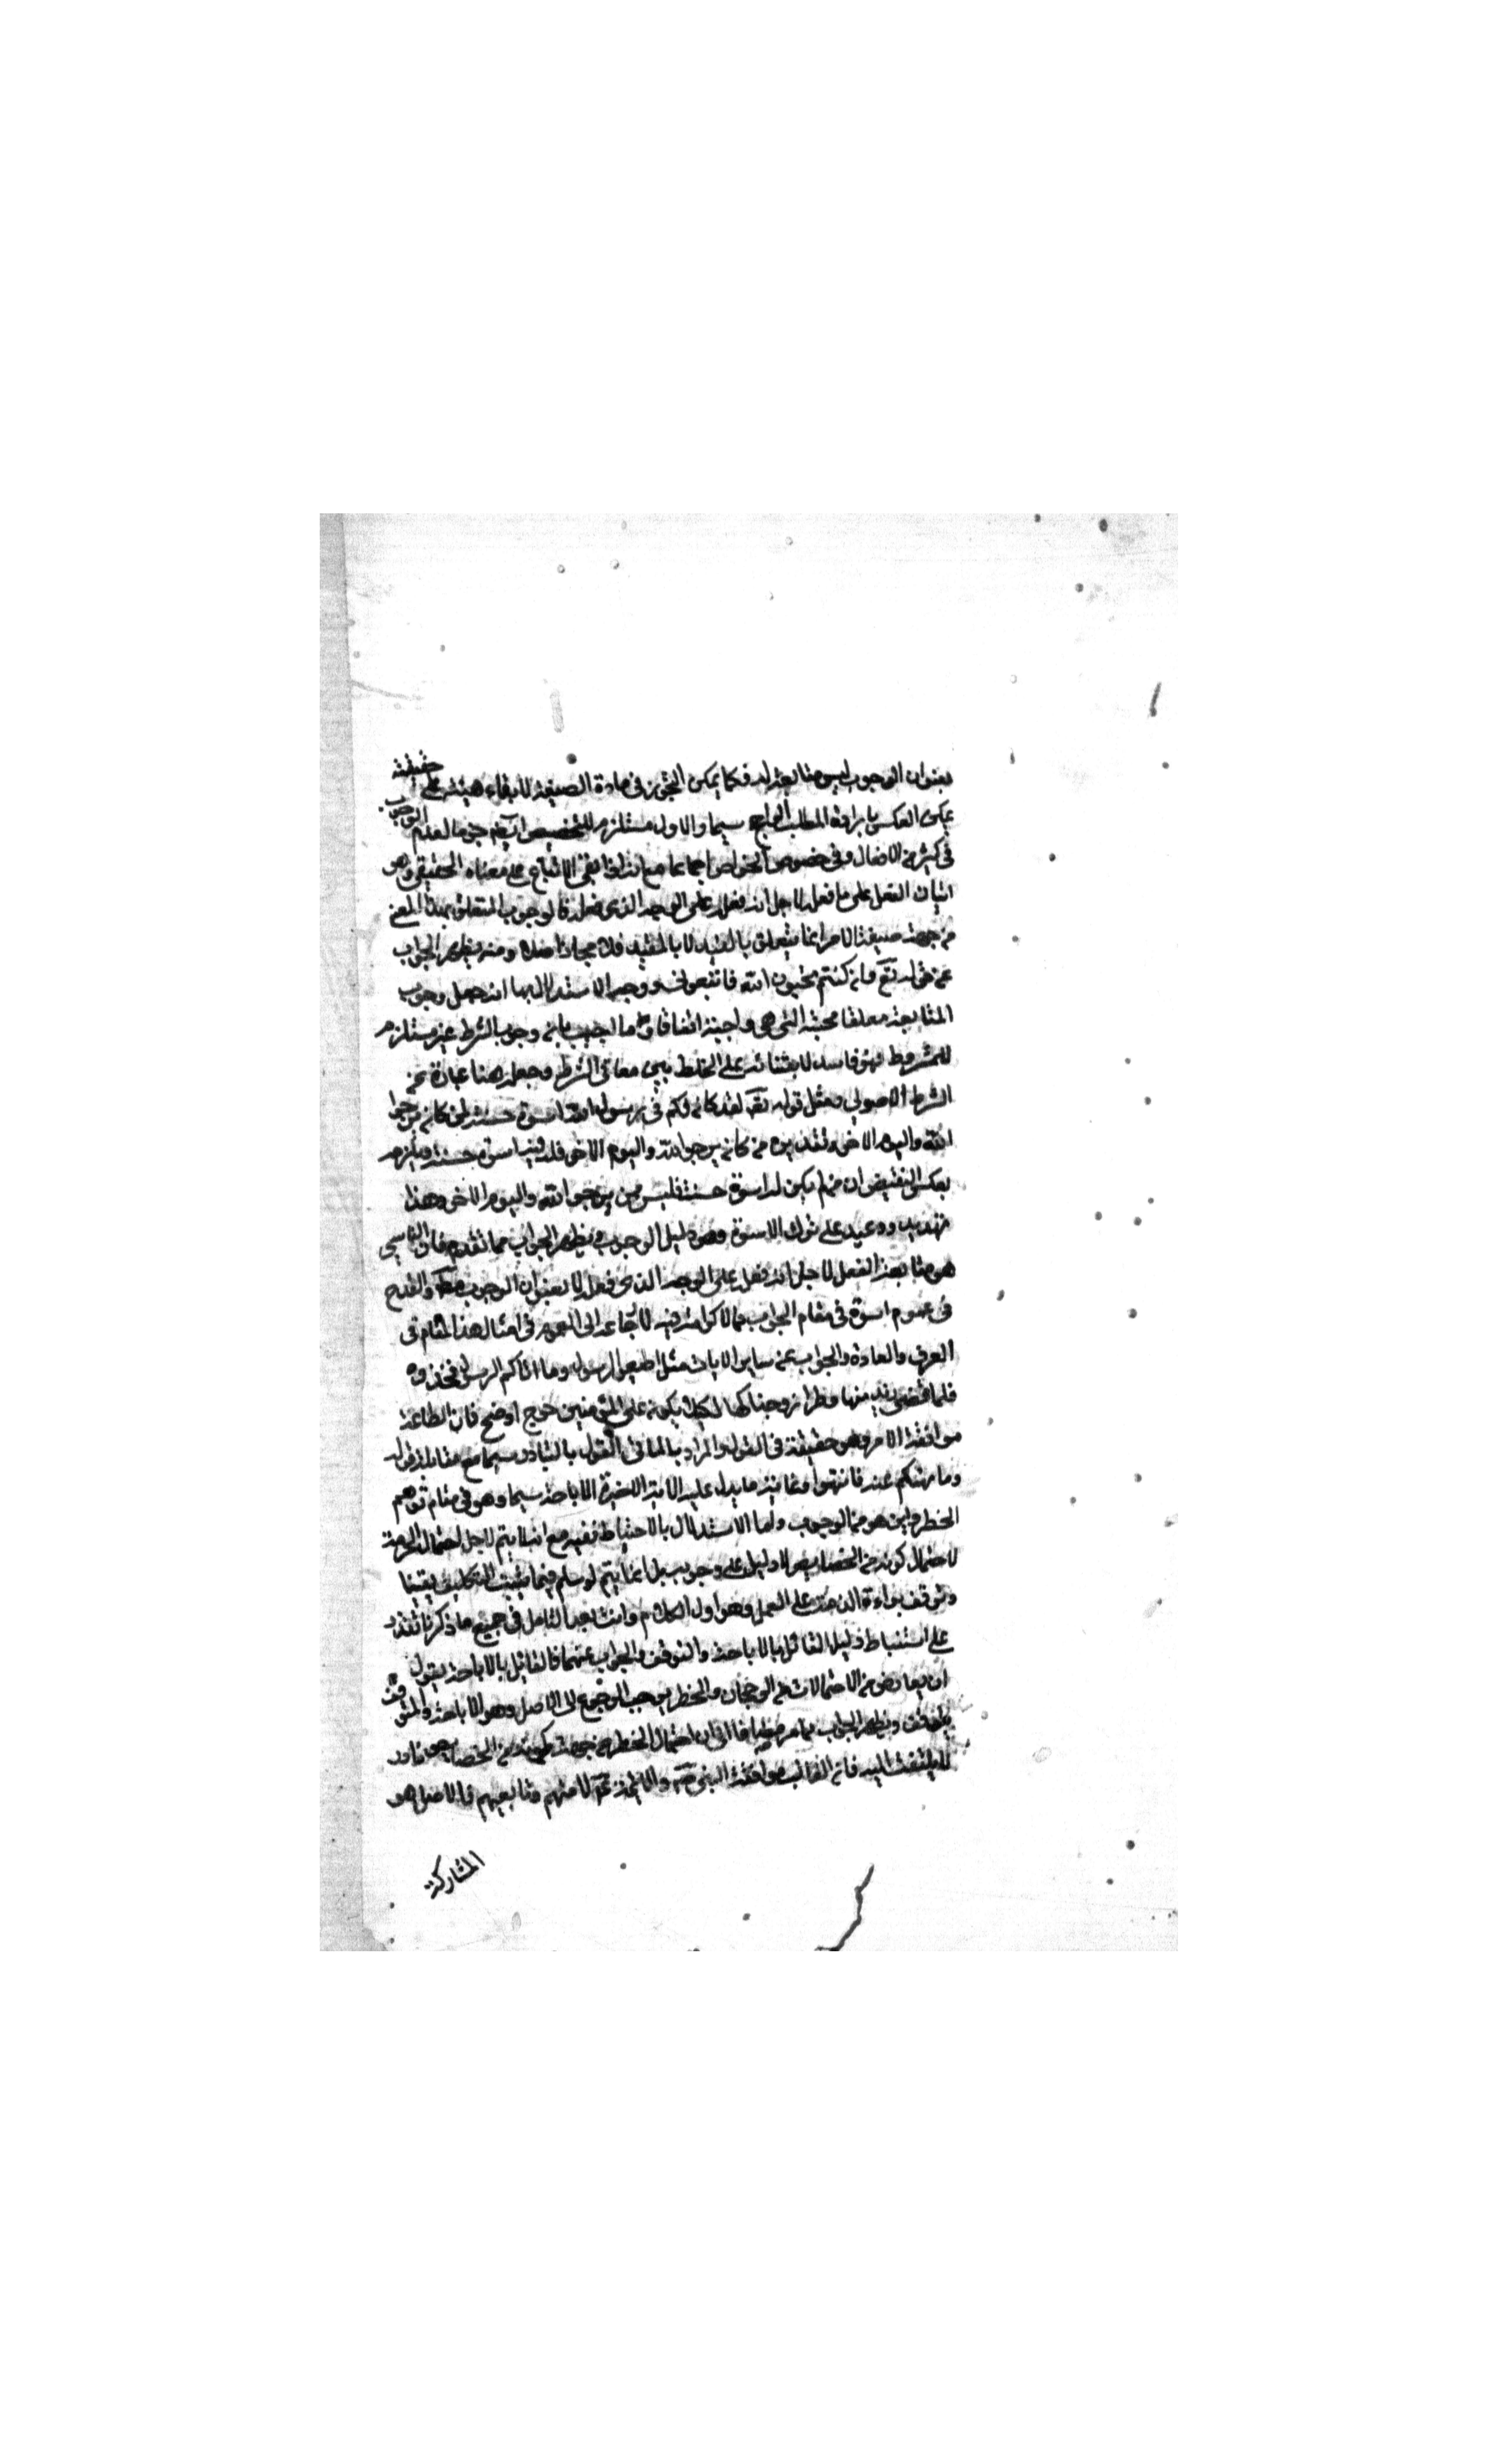 بعنوان الوجوب ليس متابعة له فكما يمكن التجوز في مادة الصيغة لابقاء هيئته على حقيقته
يمكن العكس بارادة المطلب الراجح سيما والاول مستلزم للتخصيص ايضا جزما لعدم الوجوب
في كثير من الافعال وفي خصوص الخواص اجماعا مع انه اذا بقي الاتباع على معناه الحقيقي وهو
اتيان الفعل على ما فعل لاجل انه فعله على الوجه الذي فعله فالوجوب المتعلق بهذا المعنى
من جهة صيغة الامر انما يتعلق بالقيد لا بالمقيد فلا مجاز اصلا ومنه يظهر الجواب
عن قوله تع فان كنتم تحبون الله فاتبعوني ووجه الاستدلال بها انه جعل وجوب
المتابعة معلقا محبته التي هي واجبة اتفاقا وما اجيب بان وجوب الشرط غير مستلزم
للمشروط فهو فاسد لابتنائه على الخلط بين معاني الشرط وجعله هنا عبارة عن
الشرط الاصولي ومثل قوله تع لقد كان لكم في رسول الله اسوة حسنة لمن كان يرجوا
الله واليوم الاخر وتقديره من كان يرجو الله واليوم الاخر فله فيه اسوة حسنة ويلزم
بعكس النقيض ان من لم يكن له اسوة حسنة فليس ممن يرجو الله واليوم الاخر وهذا
تهديد ووعيد على ترك الاسوة وهو دليل الوجوب ويظهر الجواب مما تقدم فان التاسي
هو متابعة الفعل لاجل انه فعل على الوجه الذي فعله لا بعنوان الوجوب والقدح
في عموم اسوة في مقام الجواب مما لا كرامة فيه لارجاعه الى العموم في امثال هذا المقام في
العرف والعادة والجواب عن ساير الايات مثل اطيعوا الرسول وما اتاكم الرسول فخذوه
فلما قضى زيد منها وطرا زوجناكها لكيلا يكون على المؤمنين حرج اوضح فان الطاعة
موافقة الامر وهو حقيقة في القول والمراد بالماتي القول بالتبادر سيما مع مقابلة قوله
وما نهيكم عنه فانتهوا وغاية ما يدل عليه الاية الاخيرة الاباحة سيما وهو في مقام توهم
الحظر واين هو من الوجوب واما الاستدلال بالاحتياط ففيه مع انه لا يتم لاجل احتمال الحرمة
لاحتمال كونه من الخصايص لا دليل على وجوبه بل انما يتم لو سلم فيما يثبت التكليف يقينا
وتوقف براءة الذمة على العمل وهو اول الكلام وانت بعد التامل في جميع ما ذكرنا تقتدر
على استنباط دليل القائل بالاباحة والتوقف والجواب عنهما فالقائل بالاباحة يقول
ان تعارض الاحتمالات من الرجحان والحظر يوجب الرجوع الى الاصل وهو الاباحة والمتوقف
يتوقف ويظهر الجواب مما مر فان احتمال الحظر من جهة كونه من الخصايص نادر
لا يلتفت اليه فان الغالب موافقة النبي ص والائمة ع لامتهم وتابعيهم فالاصل هو
المشاركة